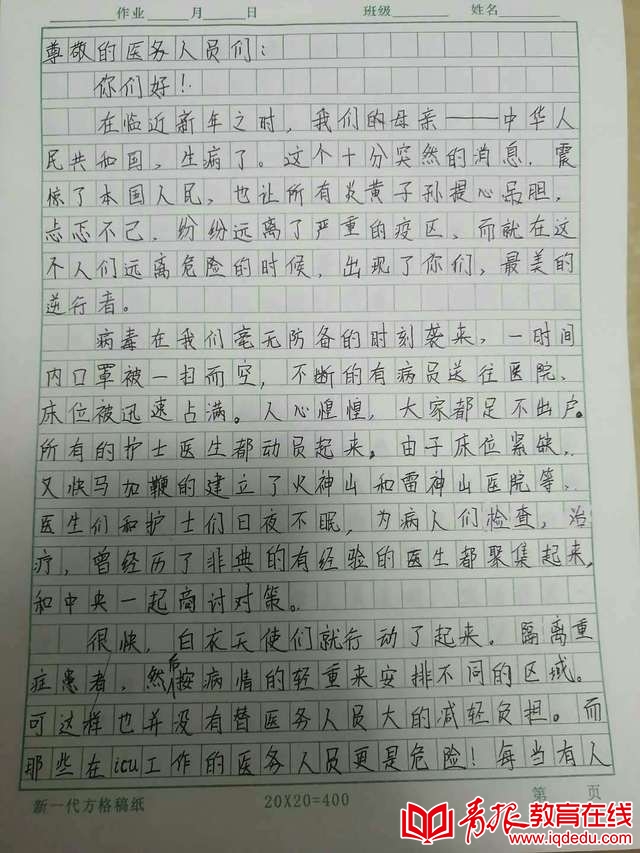 作业 月 日 班级 姓名
尊敬的医务人员们：
你们好！
在临近新年之时，我们的母亲——中华人
民共和国，生病了。这个十分突然的消息，震
惊了本国人民，也让所有炎黄子孙提心吊胆，
忐忑不已，纷纷远离了严重的疫区，而就在这
个人们远离危险的时候，出现了你们，最美的
逆行者。
病毒在我们毫无防备的时刻袭来，一时间
内口罩被一扫而空，不断的有病员送往医院，
床位被迅速占满。人心惶惶，大家都足不出户。
所有的护士医生都动员起来，由于床位紧缺，
又快马加鞭的建立了火神山和雷神山医院等，
医生们和护士们日夜不眠，为病人们检查，治
疗，曾经历了非典的有经验的医生都聚集起来，
和中央一起商讨对策。
很快，白衣天使们就行动了起来。隔离重
症患者，然后按病情的轻重来安排不同的区域。
可这样也并没有替医务人员大的减轻负担。而
那些在icu工作的医务人员更是危险！每当有人
新一代方格稿纸 20X20=400 第 页
青报教育在线
www.iqdedu.com